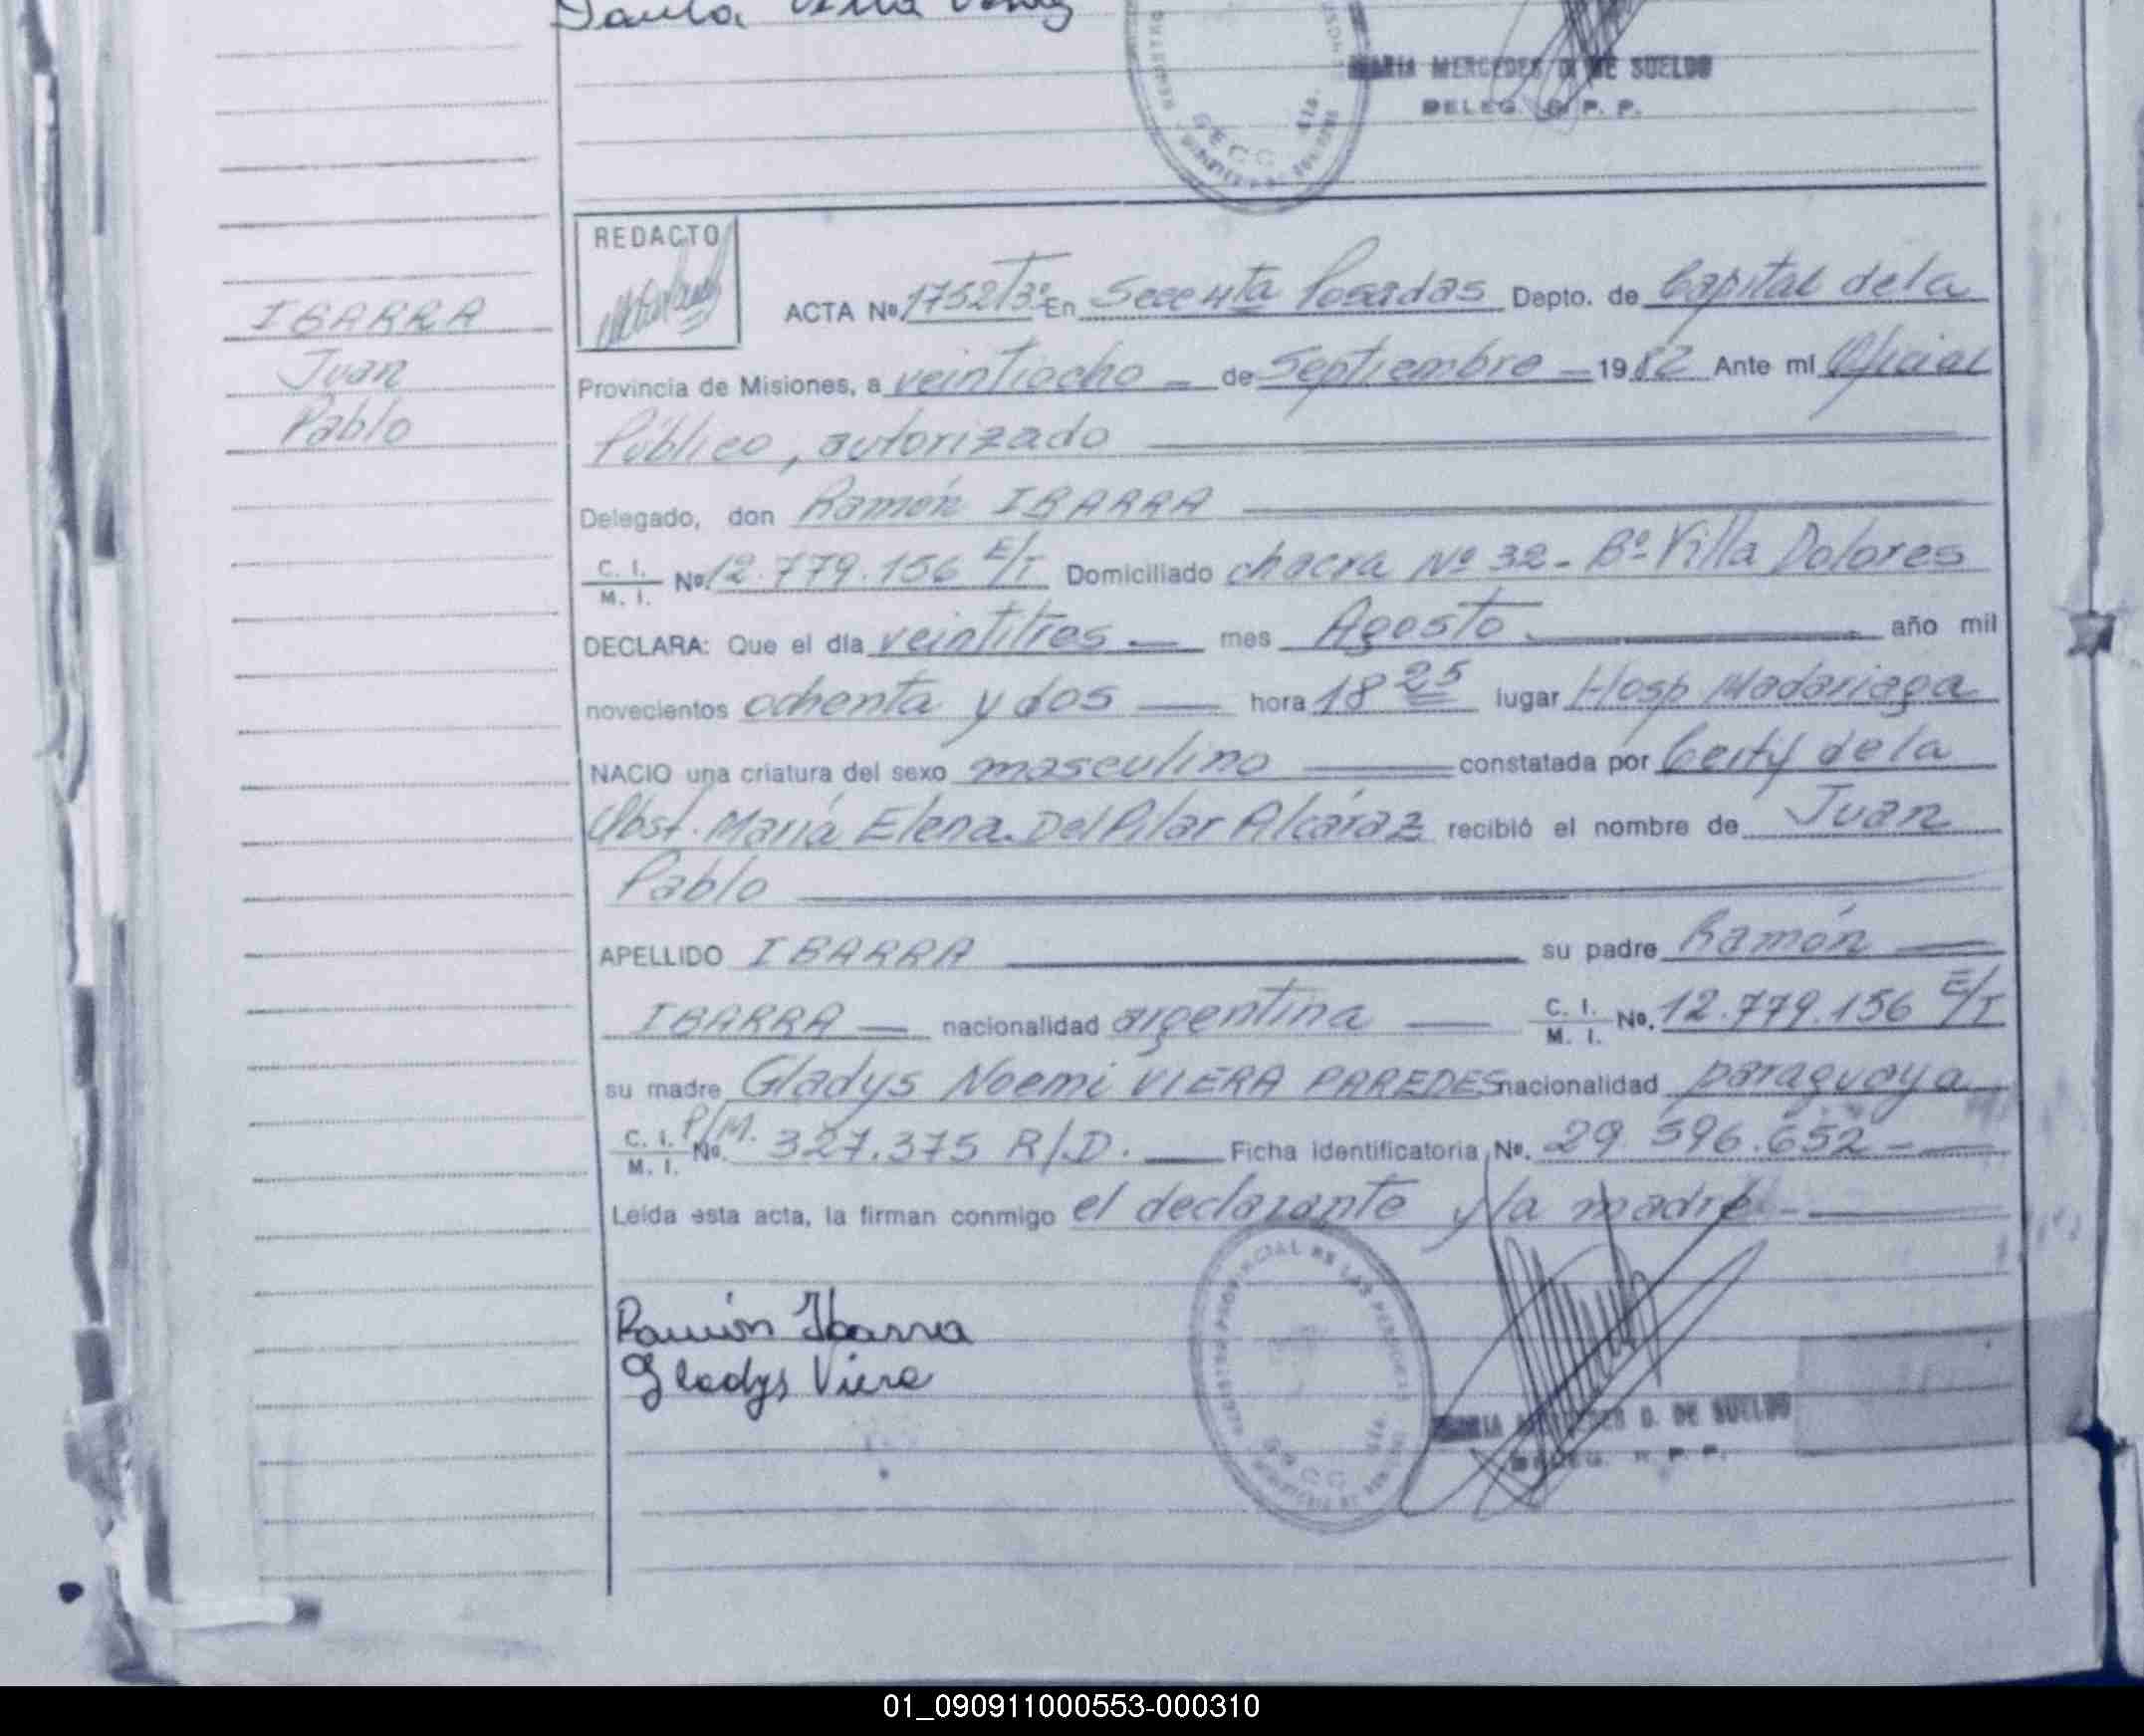 MARIA MERCEDES D. DE SUELDO
DELEG. R. P. P.
REDACTO
ACTA Nº 1752/Tº3º En Sec. 4ta Posadas Depto. de Capital de la
IBARRA
Juan
Pablo
Provincia de Misiones, a veintiocho de Septiembre 1982 Ante mí Oficial
Público, autorizado
Delegado, don Ramón IBARRA
C. I. / M. I. Nº 12.779.156 E/T Domiciliado chacra Nº 32 - Bº Villa Dolores
DECLARA: Que el día veintitres mes Agosto año mil
novecientos ochenta y dos hora 18 25 lugar Hosp Madariaga
NACIO una criatura del sexo masculino constatada por Certif de la
Obst. María Elena Del Pilar Alcáraz recibió el nombre de Juan
Pablo
APELLIDO IBARRA su padre Ramón
IBARRA nacionalidad argentina C. I. / M. I. Nº. 12.779.156 E/T
su madre Gladys Noemi VIERA PAREDES nacionalidad paraguaya
C. I. / M. I. P/M. Nº. 327.375 R/D. Ficha identificatoria Nº. 29.596.652 -
Leída esta acta, la firman conmigo el declarante y la madre -
REGISTRO PROVINCIAL DE LAS PERSONAS
Ramón Ibarra
Gladys Viera
MARIA MERCEDES D. DE SUELDO
DELEG. R. P. P.
01_090911000553-000310